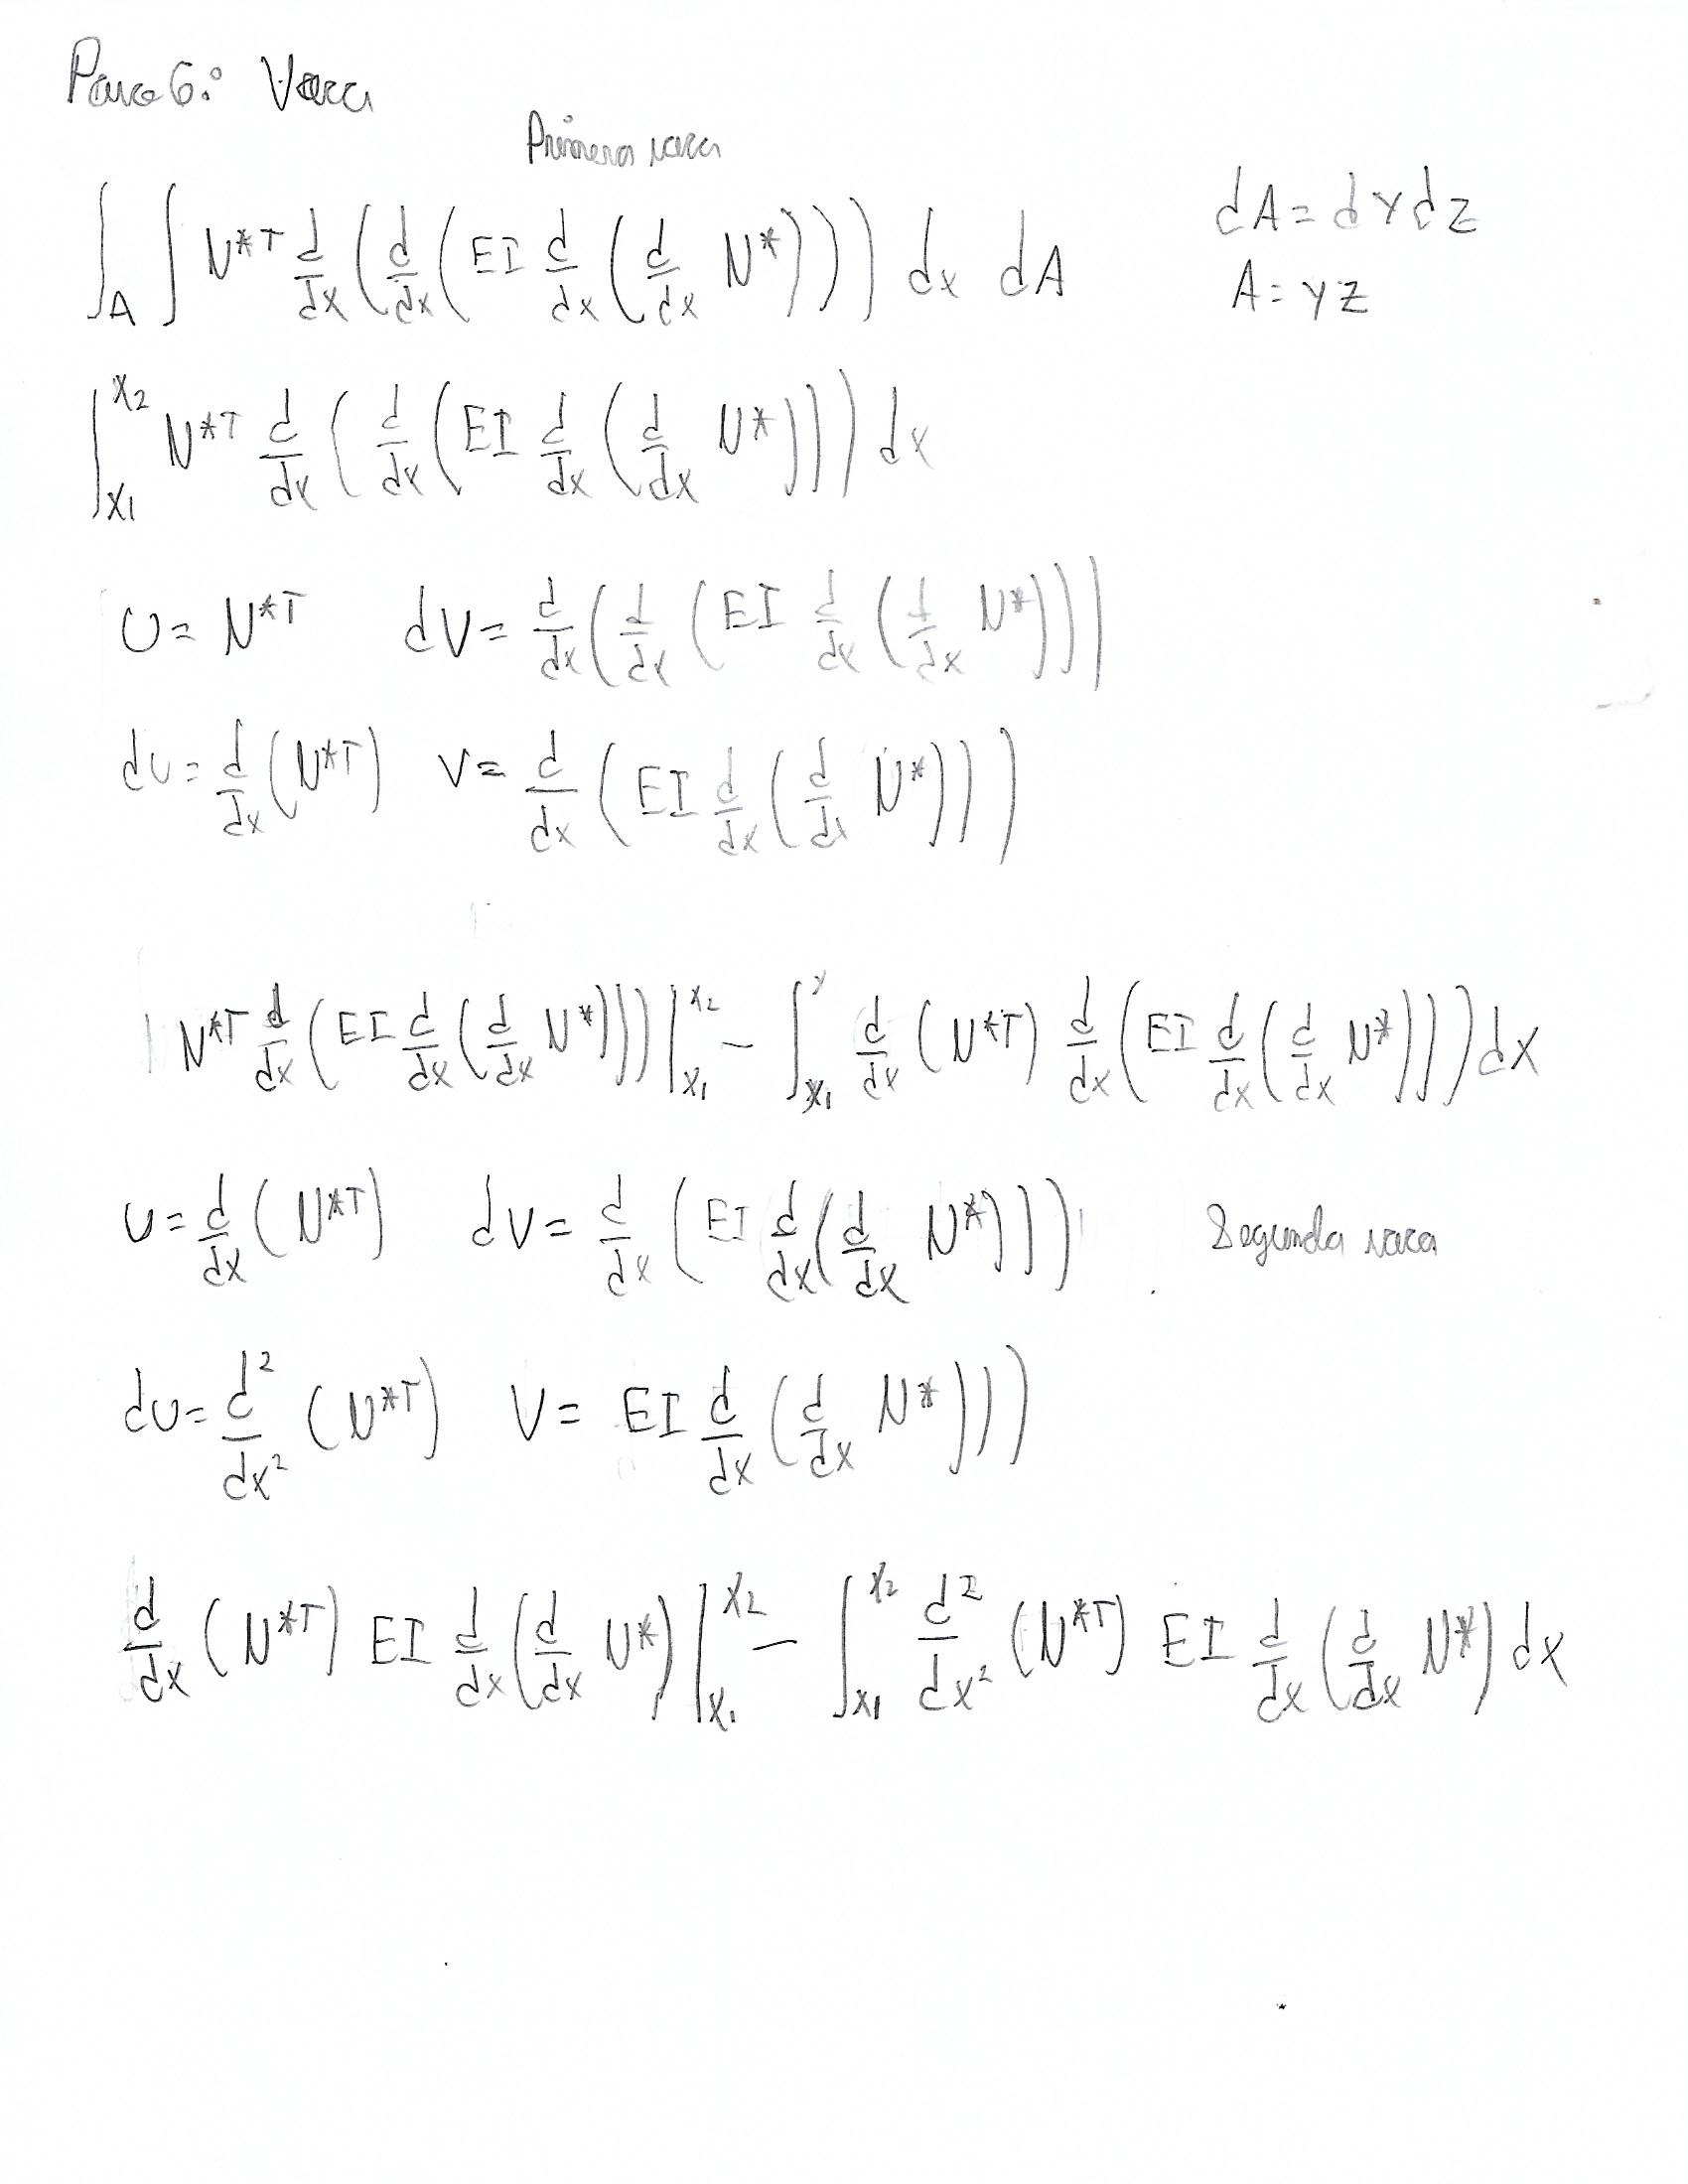 Paso 6: Vaca
Primera vaca
∫_A ∫ N*T d/dx (d/dx (EI d/dx (d/dx N*))) dx dA
dA = dYdZ
A = YZ
∫_x1^x2 N*T d/dx (d/dx (EI d/dx (d/dx N*))) dx
U = N*T dV = d/dx (d/dx (EI d/dx (d/dx N*)))
dU = d/dx (N*T) V = d/dx (EI d/dx (d/dx N*)))
N*T d/dx (EI d/dx (d/dx N*))) |_x1^x2 - ∫_x1^x d/dx (N*T) d/dx (EI d/dx (d/dx N*))) dx
U = d/dx (N*T) dV = d/dx (EI d/dx (d/dx N*))) Segunda vaca
dU = d²/dx² (N*T) V = EI d/dx (d/dx N*)))
d/dx (N*T) EI d/dx (d/dx N*) |_x1^x2 - ∫_x1^x2 d²/dx² (N*T) EI d/dx (d/dx N*) dx